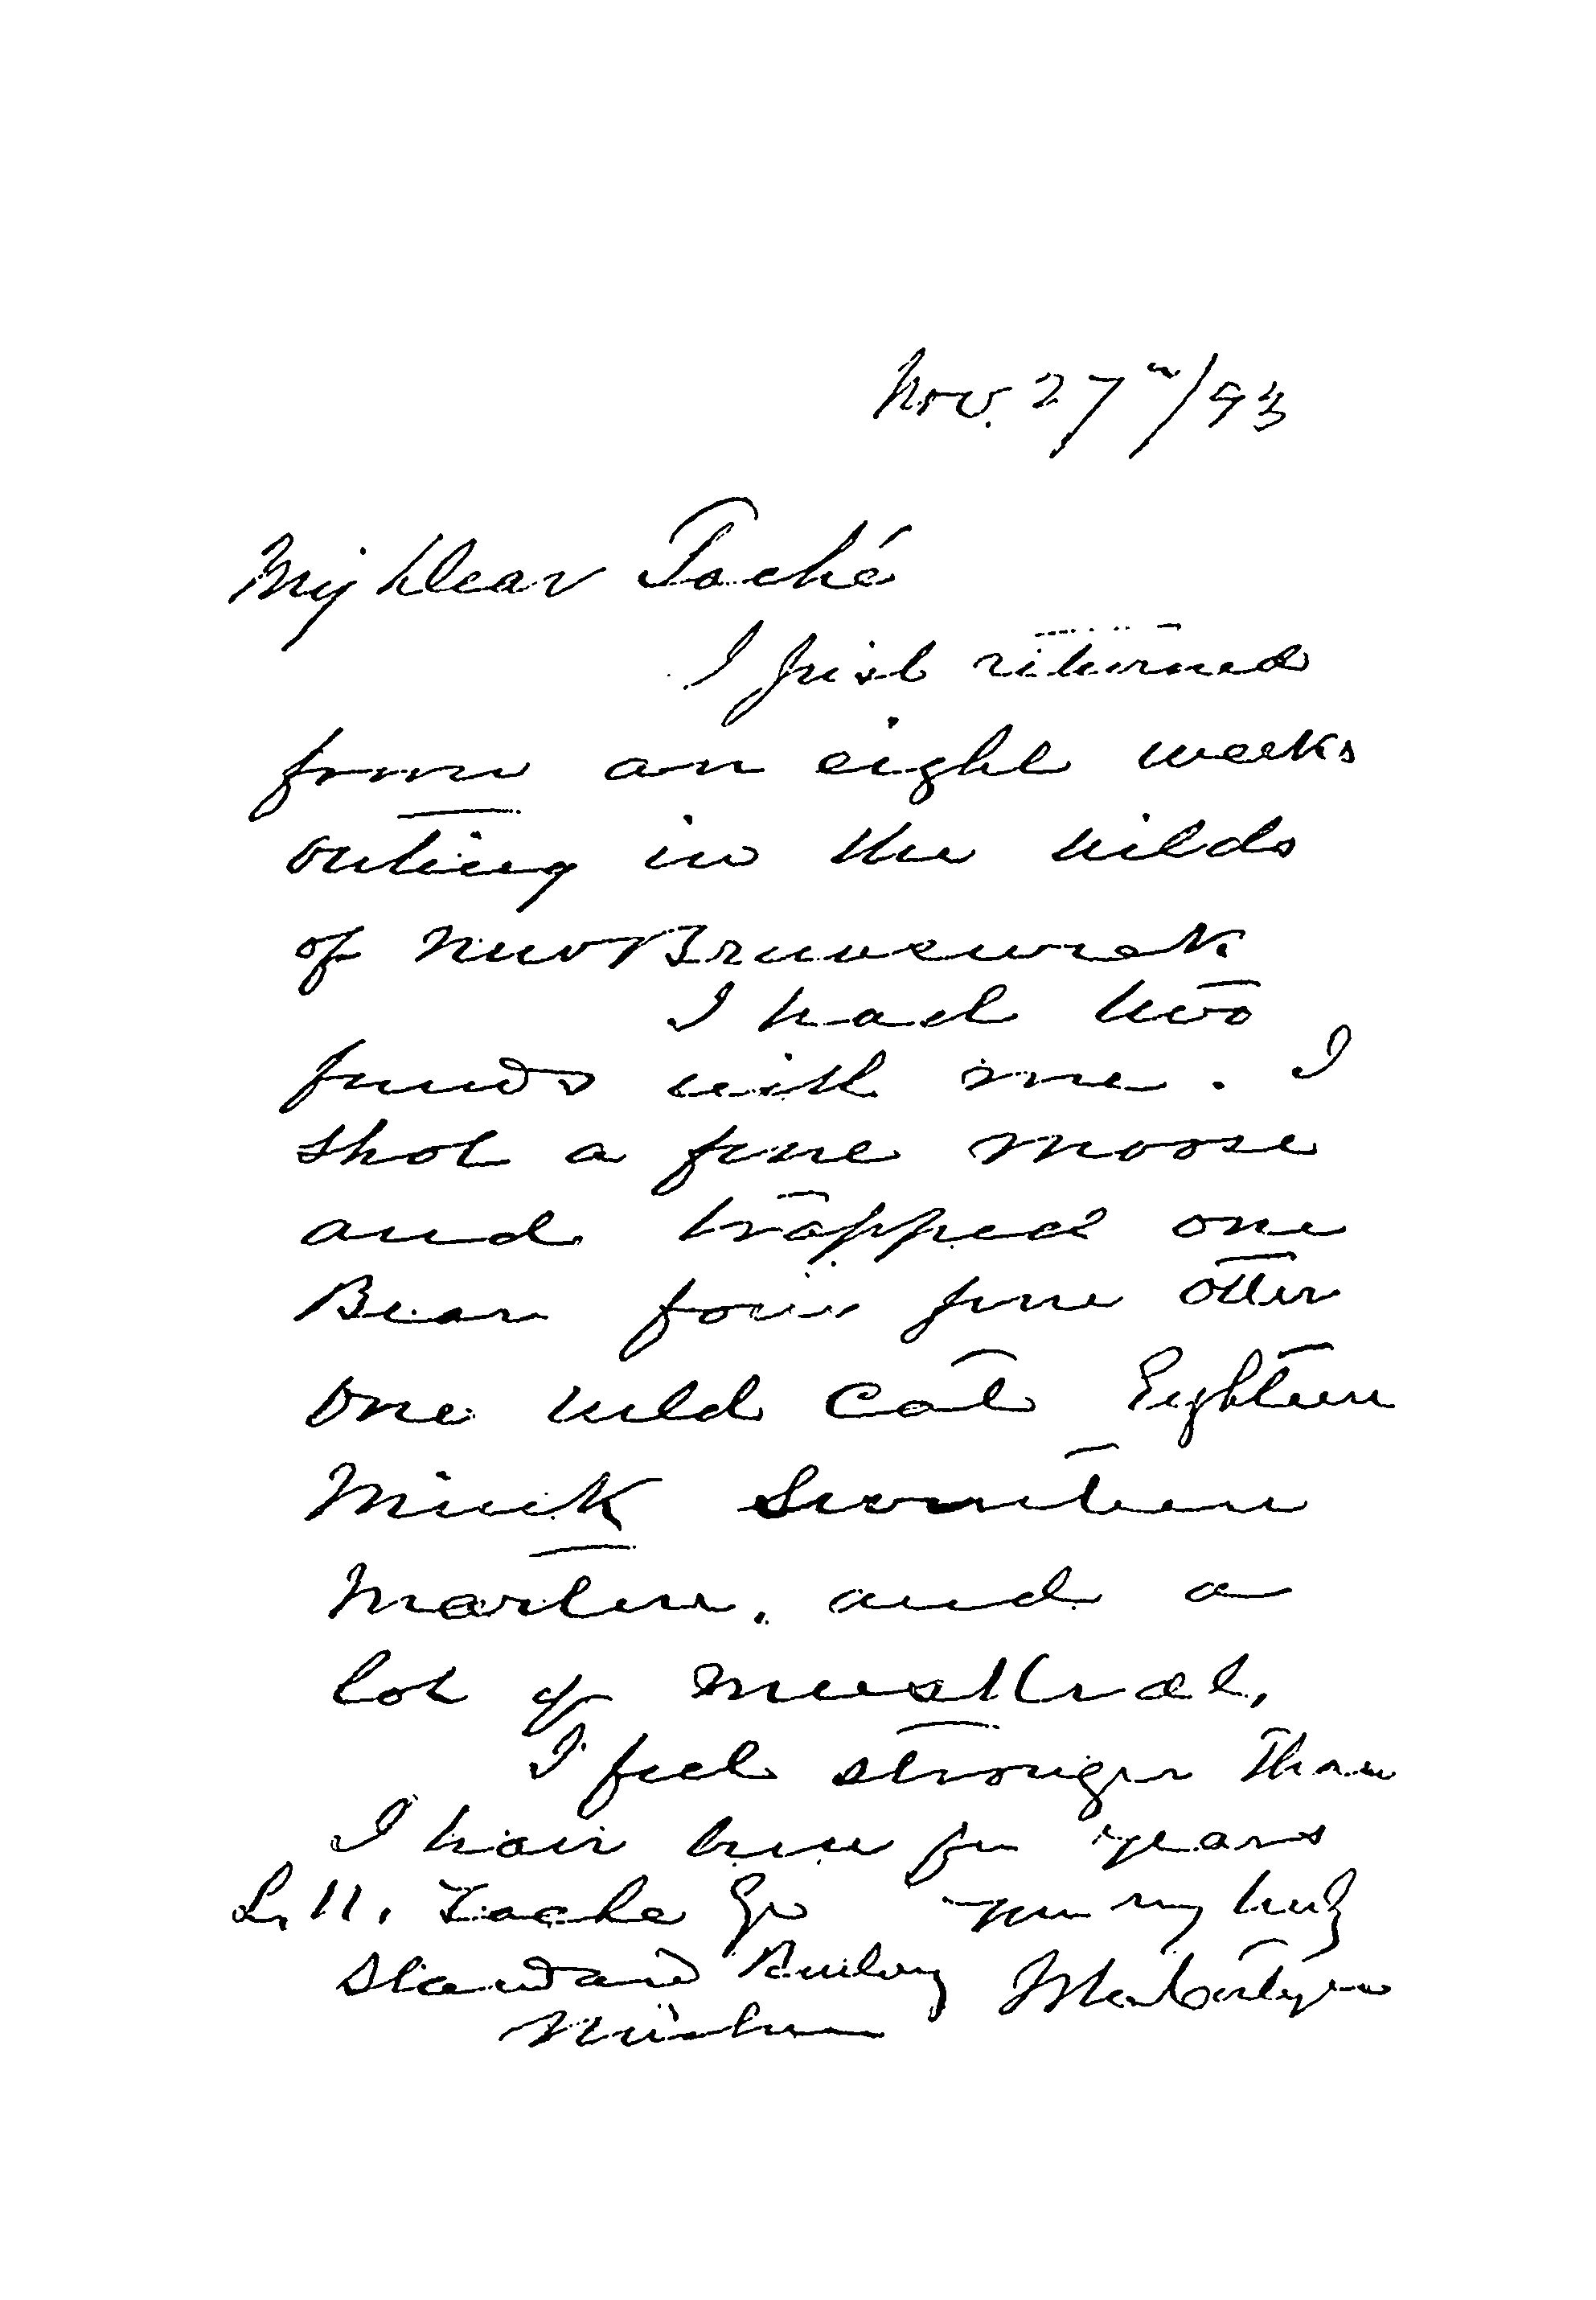 Nov. 27th/93
My Dear Taché
I just returned
from an eight weeks
outing in the wilds
of New Brunswick
I had two
friends with me. I
shot a fine moose
and trapped one
Bear four fine otter
one wild cat Eighteen
Mink Seventeen
Marten. and a
lot of muskrat,
I feel stronger than
I have been for years
L. H. Taché Esq Yours very truly
Standard Building